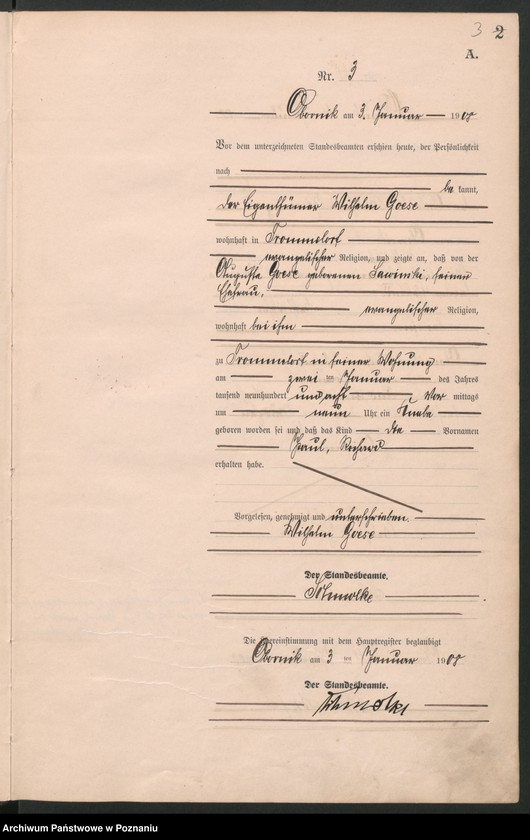 3 2
A.
Nr. 3
Obornik am 3. Januar 1908
Vor dem unterzeichneten Standesbeamten erschien heute, der Persönlichkeit
nach
be kannt,
der Eigenthümer Wilhelm Goese
wohnhaft in Trommelort
evangelischer Religion, und zeigte an, daß von der
Auguste Goese geborenen Sawinski, seiner
Ehefrau,
evangelischer Religion,
wohnhaft bei ihm
zu Trommelort in seiner Wohnung
am zwei ten Januar des Jahres
tausend neunhundert und acht Vor mittags
um neun Uhr ein Knabe
geboren worden sei und daß das Kind die Vornamen
Paul, Richard
erhalten habe.
Vorgelesen, genehmigt und unterschrieben.
Wilhelm Goese
Der Standesbeamte.
Schmolke
Die Übereinstimmung mit dem Hauptregister beglaubigt
Obornik am 3 ten Januar 1908
Der Standesbeamte.
Schmolke
Archiwum Państwowe w Poznaniu